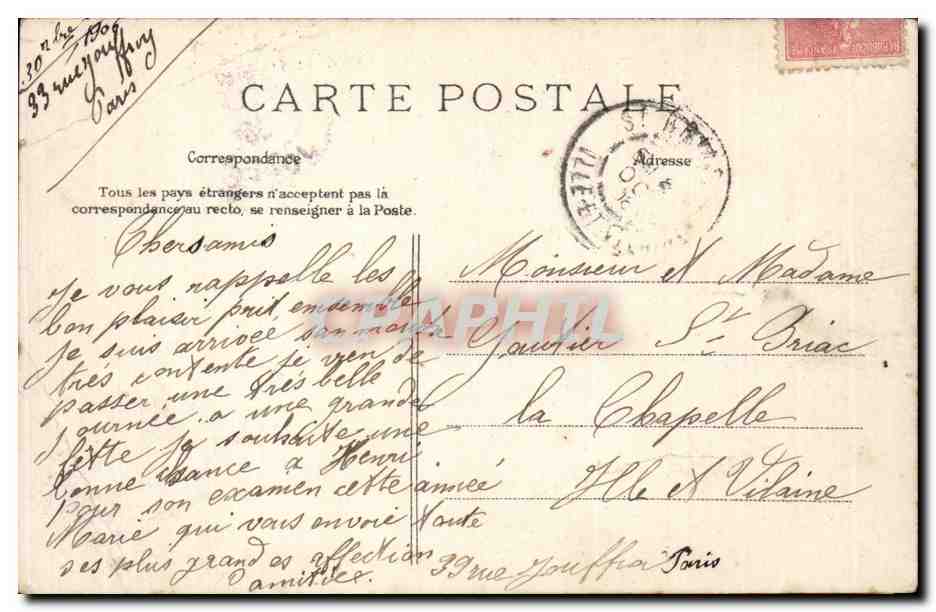 30 9bre 1906
33 rue Jouffroy
Paris
REPUBLIQUE FRANÇAISE
CARTE POSTALE
Correspondance
Adresse
Tous les pays étrangers n'acceptent pas la
correspondance au recto, se renseigner à la Poste.
ST BRIAC
ILLE-ET-VILAINE
CPAPHIL
Chers amis
Je vous rappelle les
bon plaisir prit ensemble
Je suis arrivée
très contente je vien de
passer une très belle
journée a une grande
fette je souhaite une
bonne chance a Henri
pour son examen cette année
Marie qui vous envoie toute
ses plus grandes affection
d'amitiés.
Monsieur et Madame
Gautier St Briac
la Chapelle
Ille et Vilaine
33 rue Jouffroi Paris